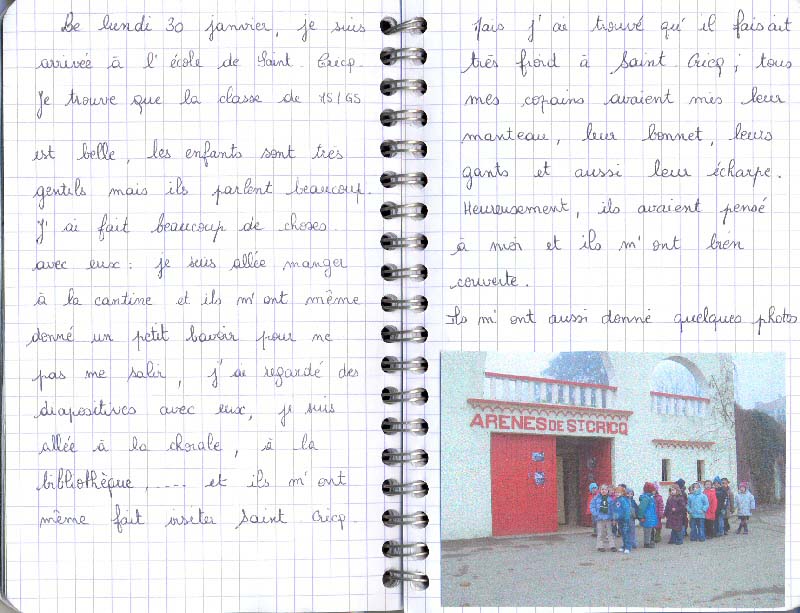 Le lundi 30 janvier, je suis
arrivée à l'école de Saint Cricq.
Je trouve que la classe de MS/GS
est belle, les enfants sont très
gentils mais ils parlent beaucoup.
J'ai fait beaucoup de choses
avec eux : je suis allée manger
à la cantine et ils m'ont même
donné un petit bavoir pour ne
pas me salir, j'ai regardé des
diapositives avec eux, je suis
allée à la chorale, à la
bibliothèque, .... et ils m'ont
même fait visiter Saint Cricq.
Mais j'ai trouvé qu'il faisait
très froid à Saint Cricq ; tous
mes copains avaient mis leur
manteau, leur bonnet, leurs
gants et aussi leur écharpe.
Heureusement, ils avaient pensé
à moi et ils m'ont bien
couverte.
Ils m'ont aussi donné quelques photos
ARENES DE ST CRICQ